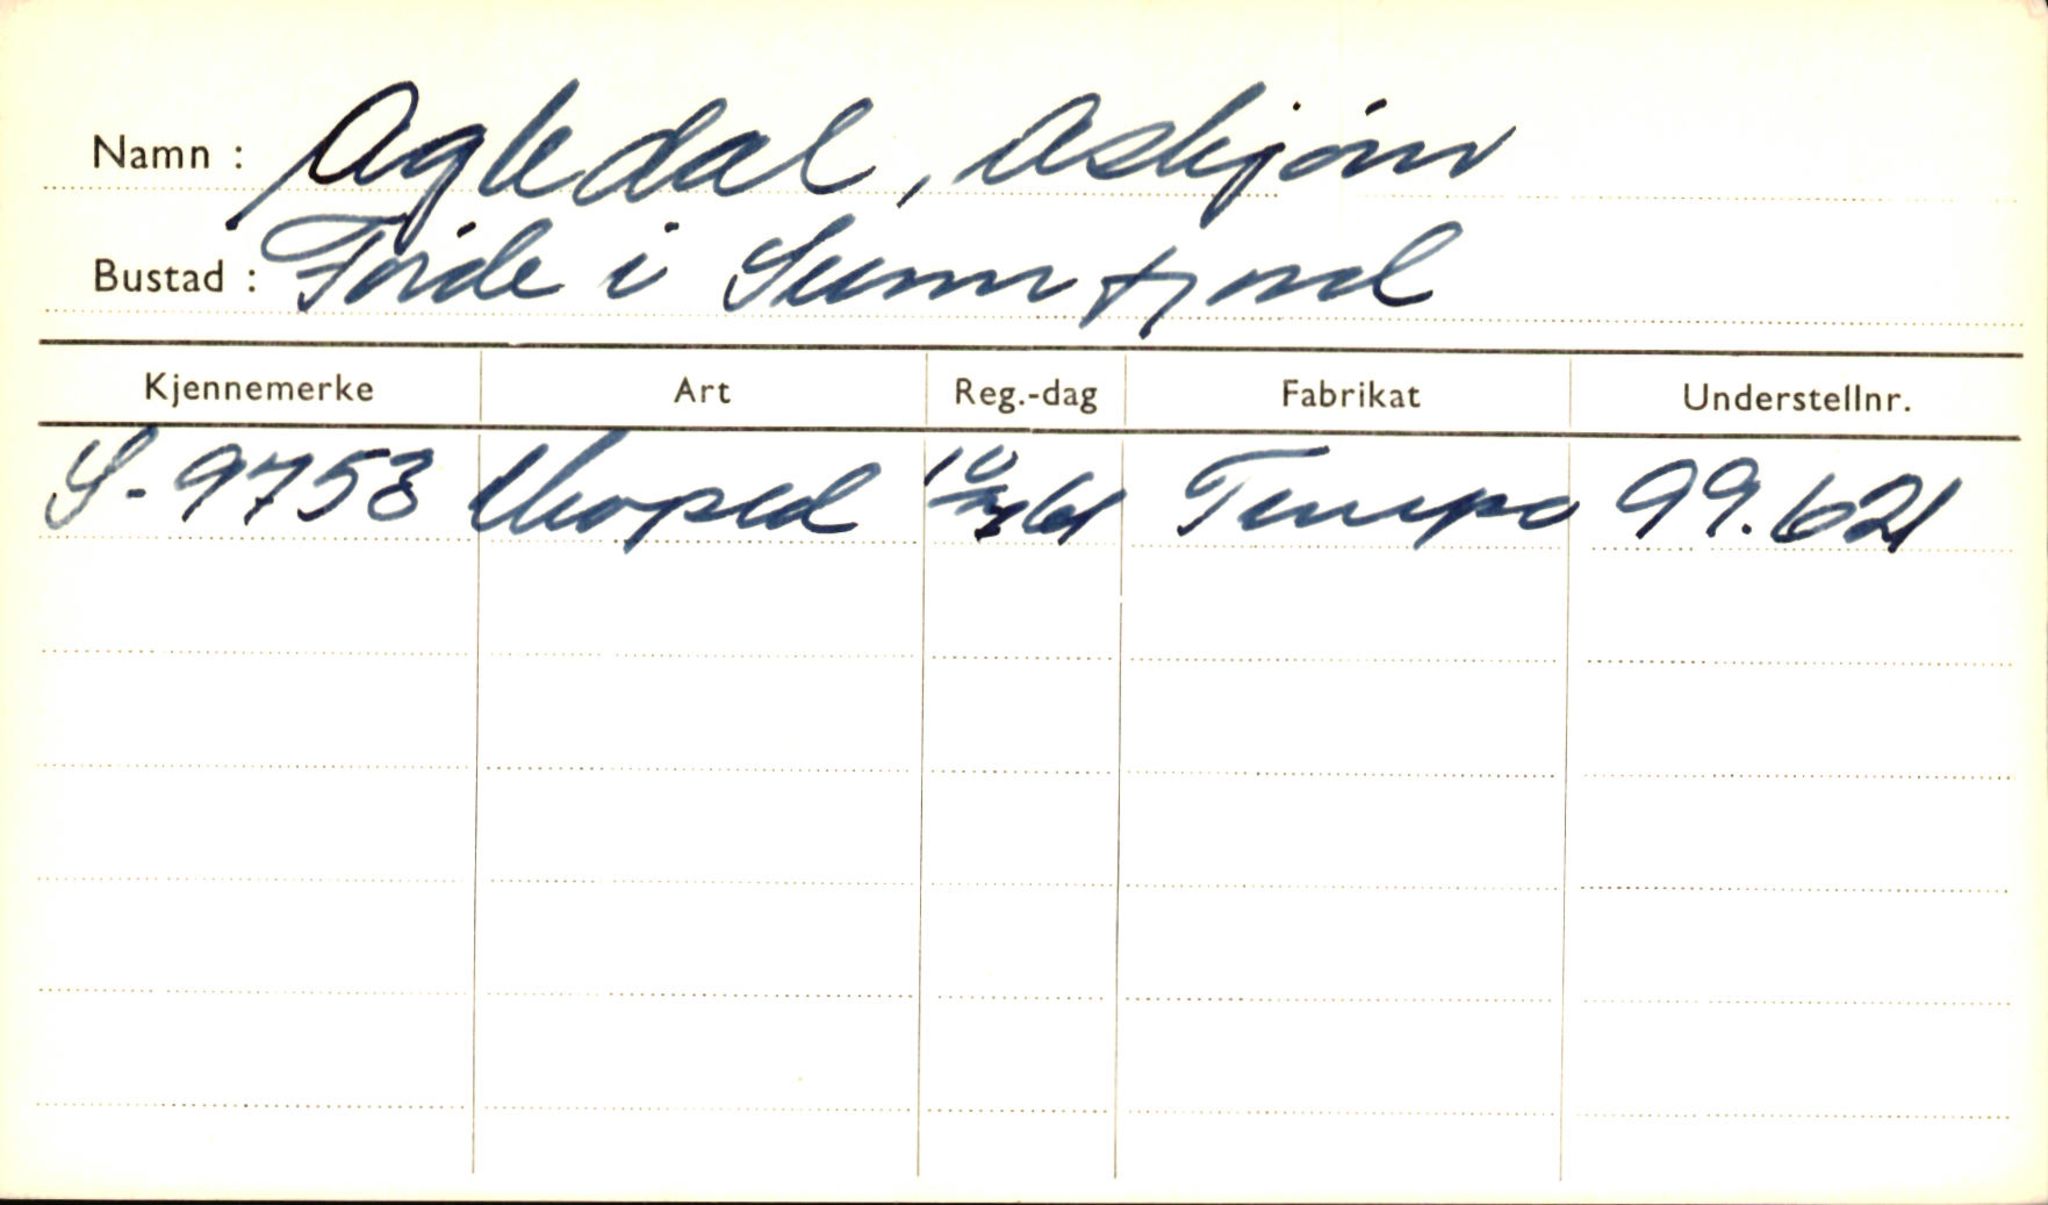 Namn : Agledal, Asbjørn
Bustad : Førde i Sunnfjord
Kjennemerke Art Reg.-dag Fabrikat Understellnr.
S-9753 Moped Tempo 99.621